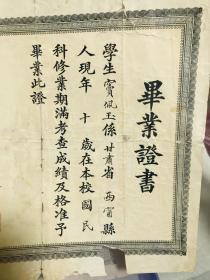 畢業證書
學生竇佩玉係甘肅省西甯縣
人現年十歲在本校國民
科修業期滿考查成績及格准予
畢業此證